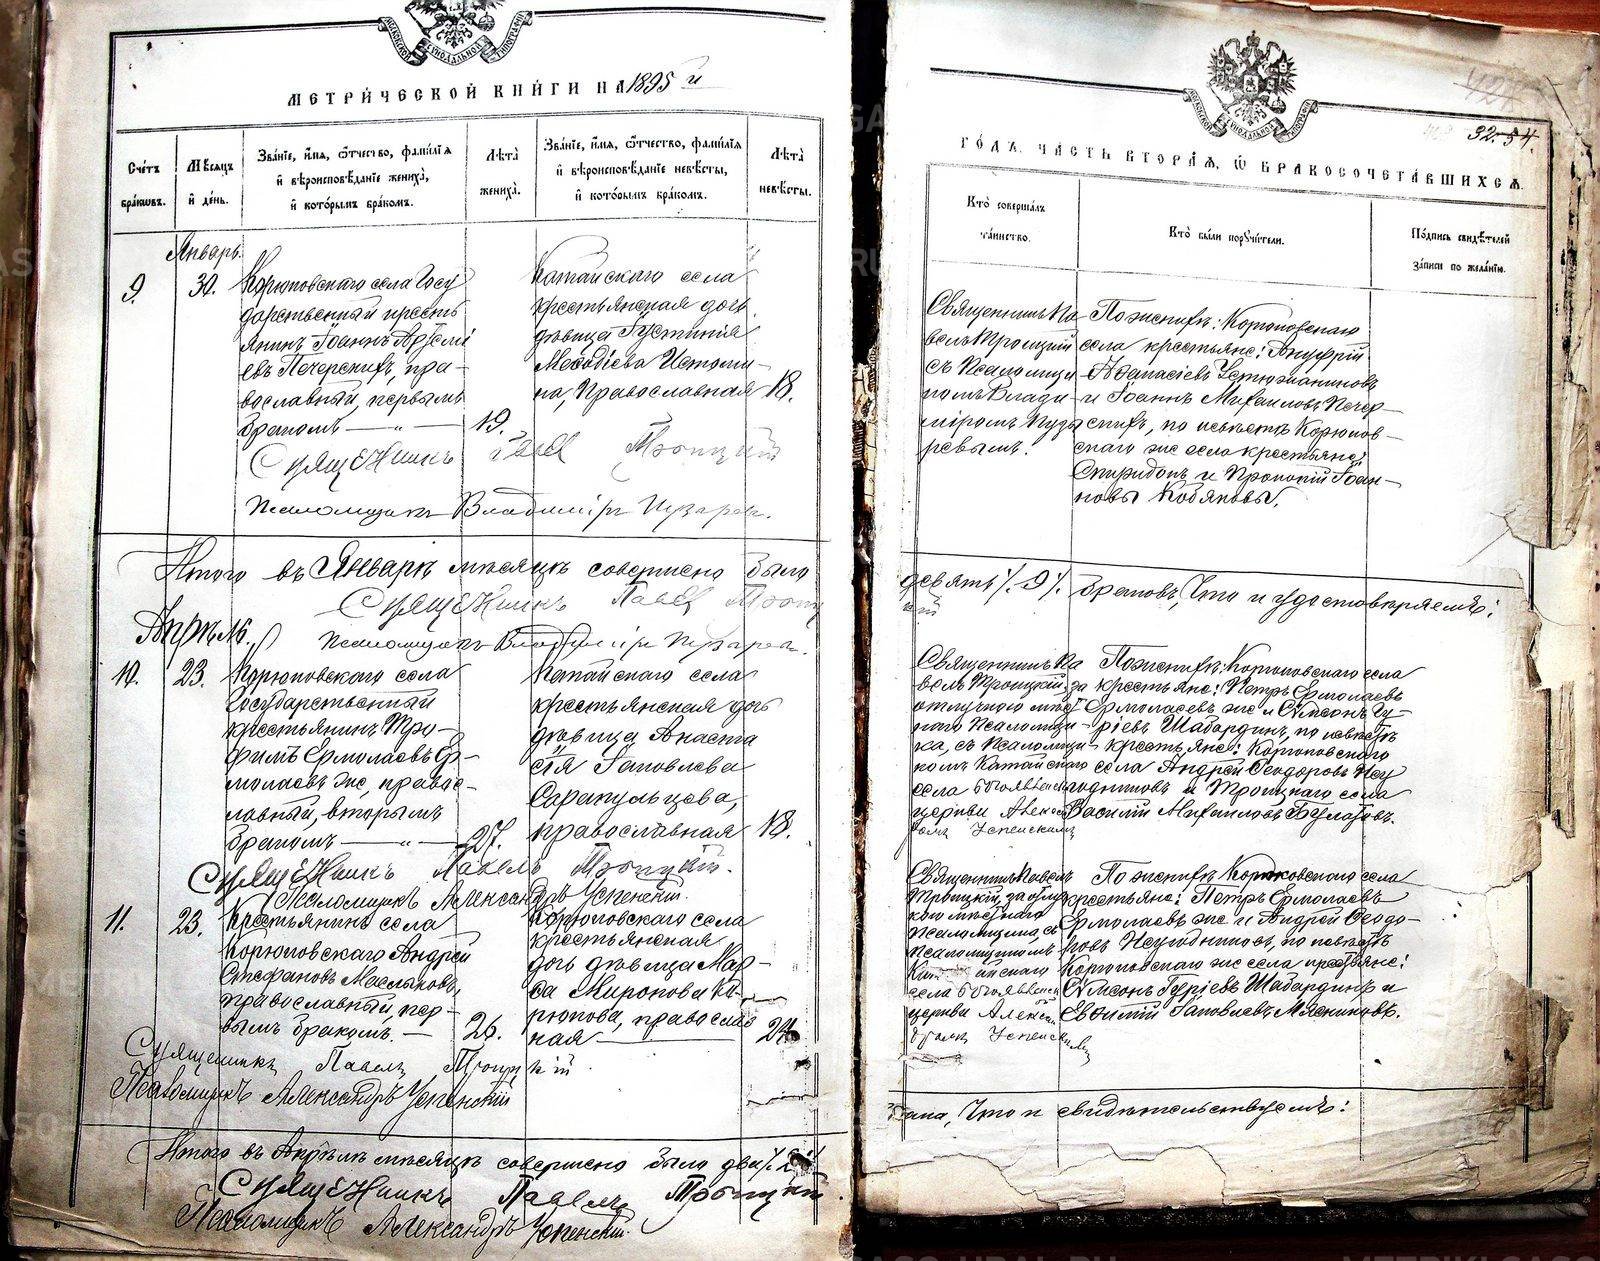 МЕТРИЧЕСКОЙ КНИГИ НА 1895 й
Счетъ браковъ.
Мѣсяцъ и день.
Званіе, имя, отчество, фамилія
и вѣроисповѣданіе жениха,
и которымъ бракомъ.
Лѣта жениха.
Званіе, имя, отчество, фамилія
и вѣроисповѣданіе невѣсты,
и которымъ бракомъ.
Лѣта невѣсты.
Январь.
9.
30.
Корюковскаго села Госу
дарственный кресть
янинъ Іоаннъ Арсені
евъ Печерскихъ, пра-
вославный, первымъ
бракомъ — „ —
19.
Катайскаго села
крестьянская дочь
дѣвица Іустинія
Меѳодіева Истоми-
на, Православная
18.
Священникъ Павел Троицкій
Псаломщикъ Владиміръ Пузырев.
Итого въ Январѣ мѣсяцѣ совершено было
Священникъ Павел Троиц
Псаломщикъ Владиміръ Пузырев.
Апрѣль.
10.
23.
Корюковскаго села
Государственный
крестьянинъ Тро-
фимъ Ермолаевъ Ер-
молаевъ же, правос-
лавный, вторымъ
бракомъ — „ —
27.
Катайскаго села
крестьянская дочь
дѣвица Анаста
сія Іаковлева
Саракульцева,
православная
18.
Священникъ Павелъ Троицкій.
Псаломщикъ Александръ Успенскій.
11.
23.
Крестьянинъ села
Корюковскаго Андрей
Стефановъ Масльковъ,
православный, пер-
вымъ бракомъ. —
26.
Корюковскаго села
крестьянская
дочь дѣвица Мар-
ѳа Миронова Ко-
рюкова, православ
ная
24
Священникъ Павелъ Троицкій
Псаломщикъ Александръ Успенскій
Итого въ Апрѣлѣ мѣсяцѣ совершено было два /.2./
Священникъ Павелъ Троицкій.
Псаломщикъ Александръ Успенскій.
32. 54.
ГОДЪ, ЧАСТЬ ВТОРАЯ, О БРАКОСОЧЕТАВШИХСЯ.
Кто совершалъ таинство.
Кто были поручители.
Подпись свидѣтелей
записи по желанію.
Священникъ Па
велъ Троицкій
съ Псаломщи-
комъ Влади-
міромъ Пузы
ревымъ.
По женихѣ: Корюковскаго
села крестьяне: Ануфрій
Аѳанасіевъ Устюжаниновъ
и Іоаннъ Михаиловъ Печер-
скихъ, по невѣстѣ Корюков-
скаго же села крестьяне:
Спиридонъ и Прокопій Іоан-
новы Кобяковы.
девять /.9./. браковъ, Что и удостовѣряемъ:
кій
Священникъ Па
велъ Троицкій, за
отлучкою мѣст
наго Псаломщи-
ка, съ Псаломщи-
комъ Катайскаго
села Богоявленск
церкви Алексан
дромъ Успенскимъ
По женихѣ: Корюковскаго села
крестьяне: Петръ Ермолаевъ
Ермолаевъ же и Симеонъ Гу-
ріевъ Шабардинъ, по невѣстѣ
крестьяне: Корюковскаго
села Андрей Ѳеодоровъ Неу
годниковъ и Троицкаго села
Василій Михаиловъ Булатовъ.
Священникъ Павелъ
Троицкій, за отлуч
кою мѣстнаго
Псаломщика, съ
Псаломщикомъ
Катайскаго
села Богоявленск
церкви Алексан
дромъ Успенскимъ
По женихѣ Корюковскаго села
крестьяне: Петръ Ермолаевъ
Ермолаевъ же и Андрей Ѳеодо-
ровъ Неугодниковъ, по невѣстѣ
Корюковскаго же села крестьяне:
Симеонъ Гуріевъ Шабардинъ и
Евѳимій Іаковлевъ Мясниковъ.
брака, Что и свидѣтельствуемъ: